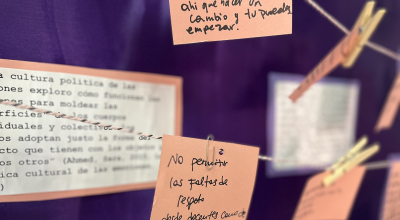 ahí que hacer un
cambio y tu puedes
empezar.
a cultura política de las
ones exploro cómo funcionan las
ones para moldear las
rficies de los cuerpos
iduales y colectivos
os adoptan justo la forma del
cto que tienen con los objetos
os otros" (Ahmed, Sara. 2015.
ica cultural de las emociones
)
No permitir
las faltas de
respeto
desde docentes